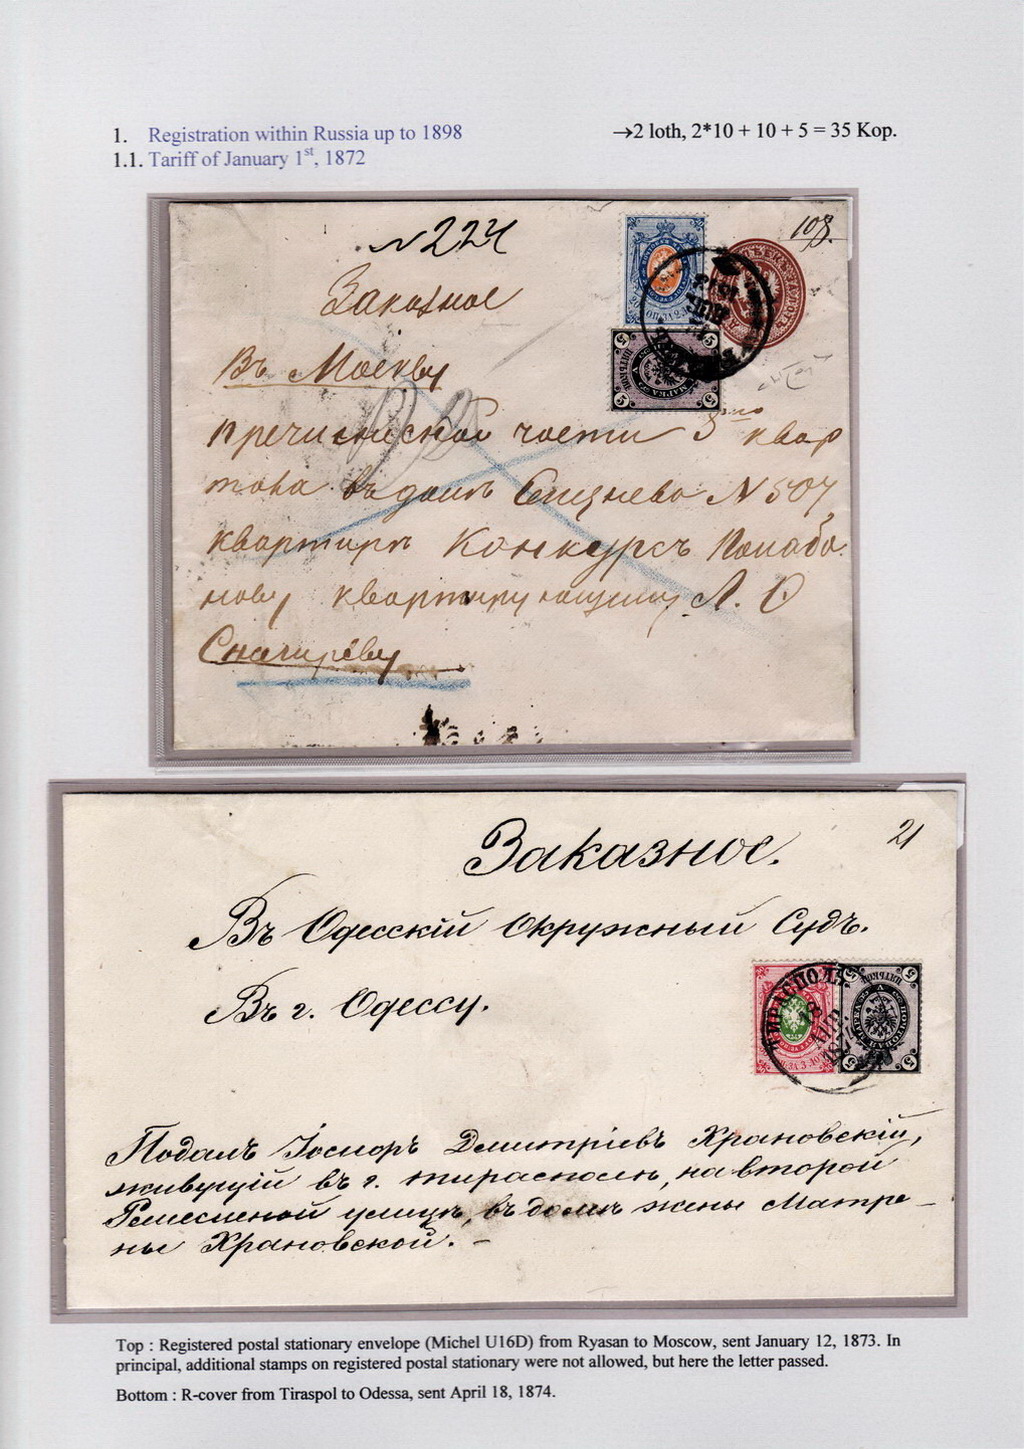 1. Registration within Russia up to 1898
→2 loth, 2*10 + 10 + 5 = 35 Kop.
1.1. Tariff of January 1st, 1872
N 224
108.
Заказное
Въ Москву
пречистиской части 5 квар
тала въ домъ N 507
квартиръ Конкурсъ
нову квартирующему Л. О
Снегиреву
5
5
5
5
Заказное.
21
Въ Одесскій Окружный Судъ.
Въ г. Одессу.
ТИРАСПОЛЬ
18
АПР
187
5
5
5
5
Подалъ Іосифъ Дмитріевъ Храновскій,
живущій въ г. тирасполь, на второй
Ремесленой улицъ, въ домъ жены Матре-
ны Храновской. -
Top : Registered postal stationary envelope (Michel U16D) from Ryasan to Moscow, sent January 12, 1873. In
principal, additional stamps on registered postal stationary were not allowed, but here the letter passed.
Bottom : R-cover from Tiraspol to Odessa, sent April 18, 1874.